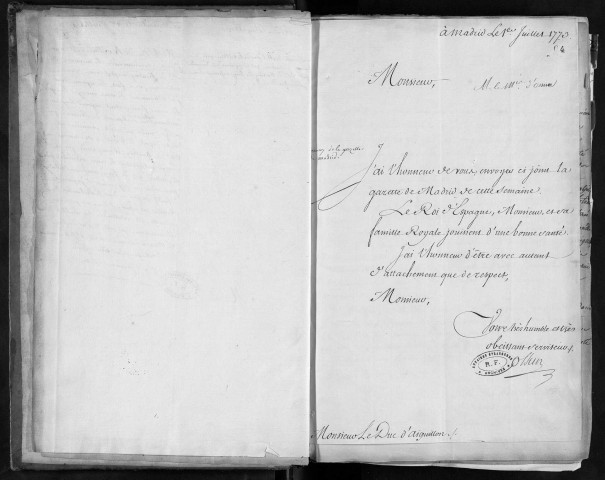 à Madrid Le 1er Juillet 1773
Monsieur,
M. le Mis. d'Ossun
envoy de la gazette
de Madrid.
J'ai l'honneur de vous envoyer ci joint la
gazette de Madrid de cette Semaine.
Le Roi d'Espagne, Monsieur, et sa
famille Royale jouissent d'une bonne santé.
J'ai l'honneur d'être avec autant
d'attachement que de respect,
Monsieur,
Votre très humble et très
obeissant serviteur,
Ossun
AFFAIRES ETRANGERES
R. F.
ARCHIVES
Monsieur Le Duc d'Aiguillon.